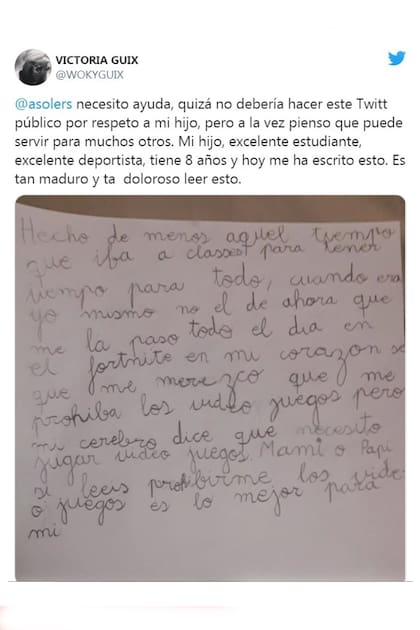 VICTORIA GUIX
@WOKYGUIX
@asolers necesito ayuda, quizá no debería hacer este Twitt
público por respeto a mi hijo, pero a la vez pienso que puede
servir para muchos otros. Mi hijo, excelente estudiante,
excelente deportista, tiene 8 años y hoy me ha escrito esto. Es
tan maduro y ta doloroso leer esto.
Hecho de menos aquel tiempo
que iba a classes para tener
tiempo para todo, cuando era
yo mismo no el de ahora que
me la paso todo el dia en
el fortnite en mi corazon se
que me merezco que me
prohiba los video juegos pero
mi cerebro dice que necesito
jugar video juegos. Mami o Papi
si leeis prohibirme los vide-
o juegos es lo mejor para
mi